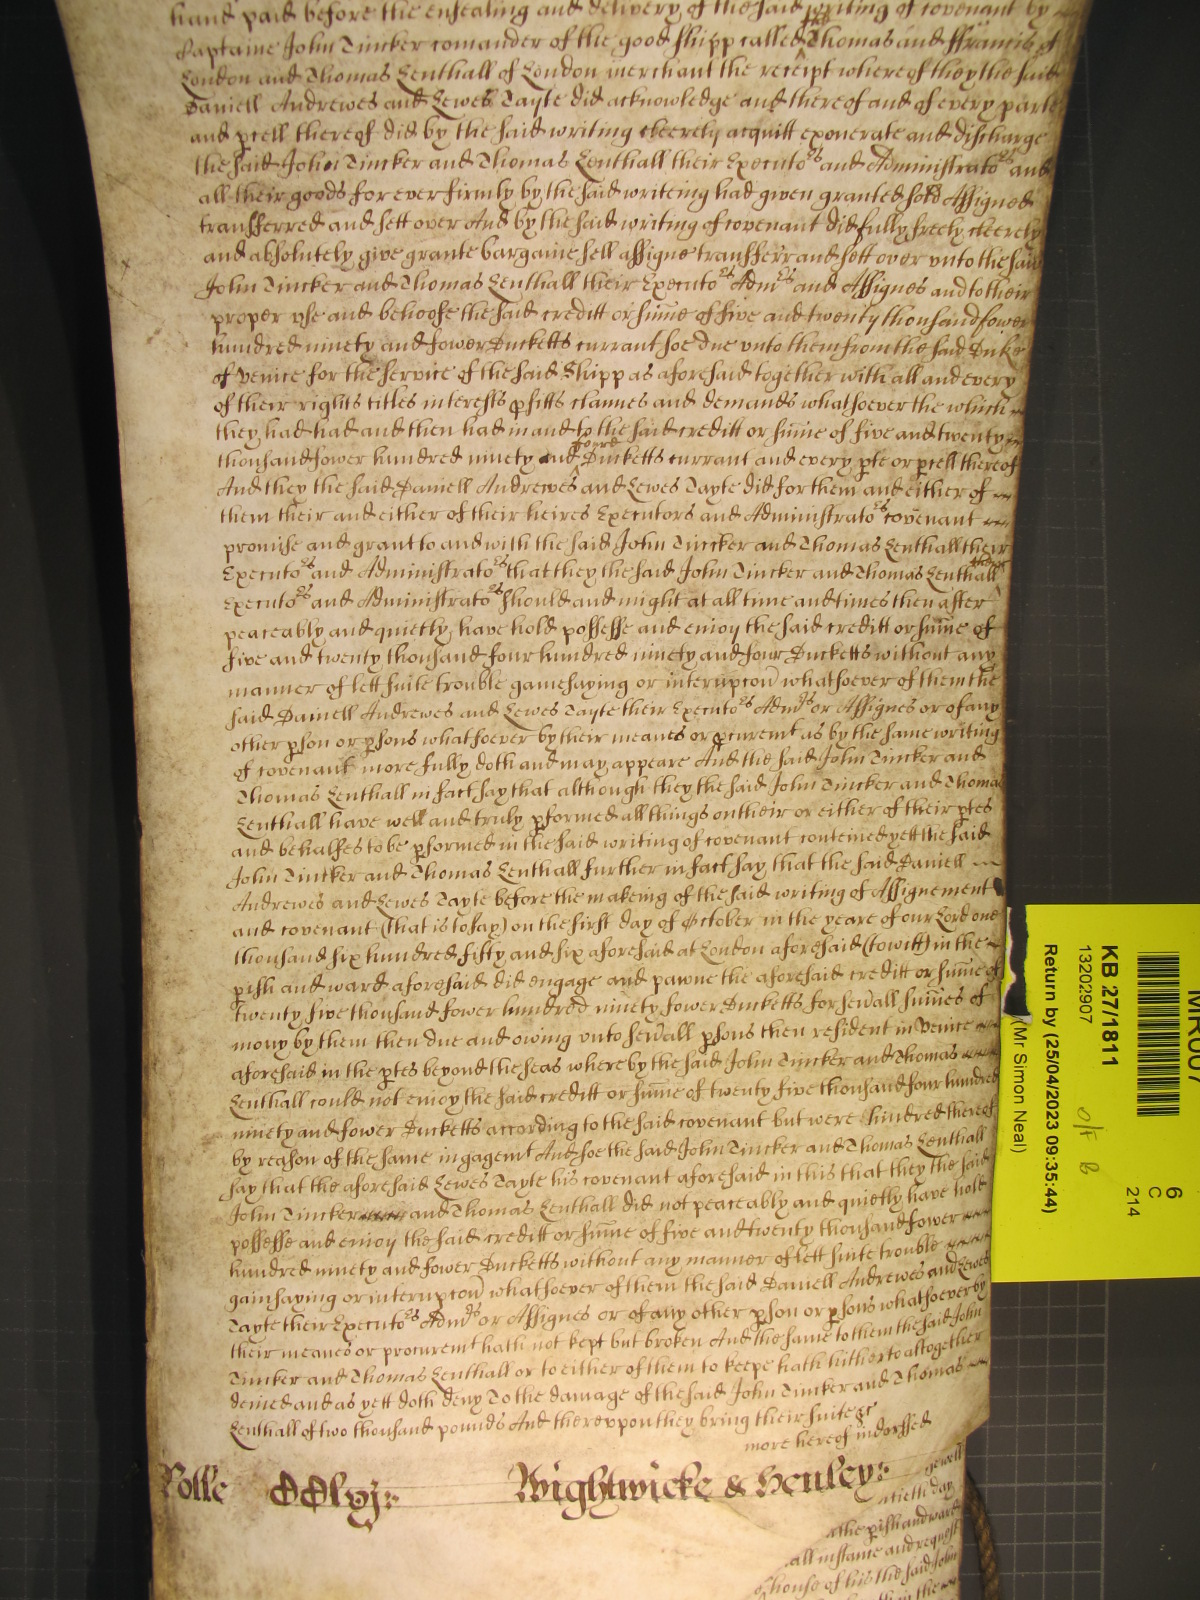 hand paid before the ensealing and delivery of the said writing of covenant by
Captaine John Tincker comander of the good shipp called the Thomas and Ffrancis of
London and Thomas Lenthall of London merchant the receipt whereof they the said
Daniell Andrewes and Lewes Tayte did acknowledge and thereof and of every parte
and pcell thereof did by the said writing cleerely acquitt exonerate and discharge
the said John Tincker and Thomas Lenthall their Executors and Administrators and
all their goods for ever firmly by the said writeing had given granted sold Assigned
transferred and sett over And by the said writing of covenant did fully freely cleerely
and absolutely give grante bargaine sell assigne transferr and sett over unto the said
John Tincker and Thomas Lenthall their Executors Admrs and Assignes and to their
proper use and behoofe the said creditt or sume of five and twenty thousand fower
hundred ninety and fower Ducketts currant soe due unto them from the said Duke
of Venice for the service of the said Shipp as aforesaid together with all and every
of their rights titles interests pfitts claimes and demands whatsoever the which
they had had and then had in and to the said creditt or sume of five and twenty
thousand fower hundred ninety and fower Ducketts currant and every pte or pcell thereof
And they the said Daniell Andrewes and Lewes Tayte did for them and either of
them their and either of their heires Executors and Administrators covenant
promise and grant to and with the said John Tincker and Thomas Lenthall their
Executors and Administrators that they the said John Tincker and Thomas Lenthall their
Executors and Administrators should and might at all time and times then after
peaceably and quietly have hold possesse and enioy the said creditt or sume of
five and twenty thousand four hundred ninety and four Ducketts without any
manner of lett suite trouble gainesaying or interupcon whatsoever of them the
said Daniell Andrewes and Lewes Tayte their Executors Admrs or Assignes or of any
other pson or psons whatsoever by their meanes or pcuremt as by the same writing
of covenant more fully doth and may appeare And the said John Tincker and
Thomas Lenthall in fact say that although they the said John Tincker and Thomas
Lenthall have well and truly pformed all things on their or either of their ptes
and behalfes to be pformed in the said writing of covenant conteined yett the said
John Tincker and Thomas Lenthall further in fact say that the said Daniell
Andrewes and Lewes Tayte before the makeing of the said writing of Assignement
and covenant (that is to say) on the first day of October in the yeare of our Lord one
thousand six hundred fifty and six aforesaid at London aforesaid (to witt) in the
pish and ward aforesaid did engage and pawne the aforesaid creditt or sume of
twenty five thousand fower hundred ninety fower Ducketts for sevall sumes of
mony by them then due and owing unto sevall psons then resident in Venice
aforesaid in the ptes beyond the seas whereby the said John Tincker and Thomas
Lenthall could not enioy the said creditt or sume of twenty five thousand four hundred
ninety and fower Ducketts according to the said covenant but were hindred thereof
by reason of the same ingagemt And soe the said John Tincker and Thomas Lenthall
say that the aforesaid Lewes Tayte his covenant aforesaid in this that they the said
John Tincker and Thomas Lenthall did not peaceably and quietly have hold
possesse and enioy the said creditt or sume of five and twenty thousand fower
hundred ninety and fower Ducketts without any manner of lett suite trouble
gainsaying or interupcon whatsoever of them the said Daniell Andrewes and Lewes
Tayte their Executors Admrs or Assignes or of any other pson or psons whatsoever by
their meanes or procuremt hath not kept but broken And the same to them the said John
Tincker and Thomas Lenthall or to either of them to keepe hath hitherto altogether
denied and as yett doth deny To the damage of the said John Tincker and Thomas
Lenthall of two thousand pounds And thereupon they bring their suite &c
more hereof indorssed
Rolle
Wightwicke & Henley
day
the pish and ward
all instance and request
house of his the said John
in the
KB 27/1811
13202907
Return by (25/04/2023 09:35:44)
(Mr Simon Neal)
6
C
214